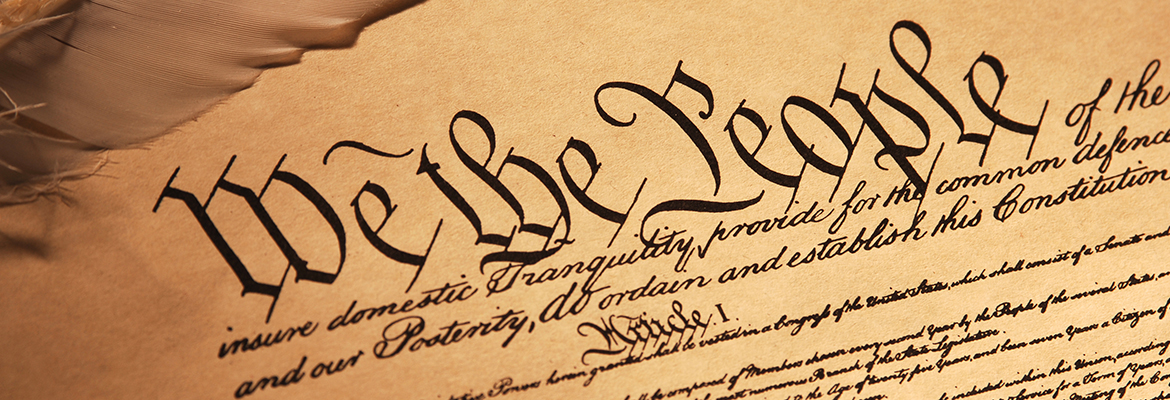 We the People of the
insure domestic Tranquility, provide for the common defence
and our Posterity, do ordain and establish this Constitution
Article I.
Powers herein granted shall be vested in a Congress of the United States, which shall consist of a Senate and
shall be composed of Members chosen every second Year by the People of the several States, an
most numerous Branch of the State Legislature.
the Age of twenty five Years, and been seven Years a Citizen of
included within this Union, according
Service for a Term of Years, a
Meeting of the Con